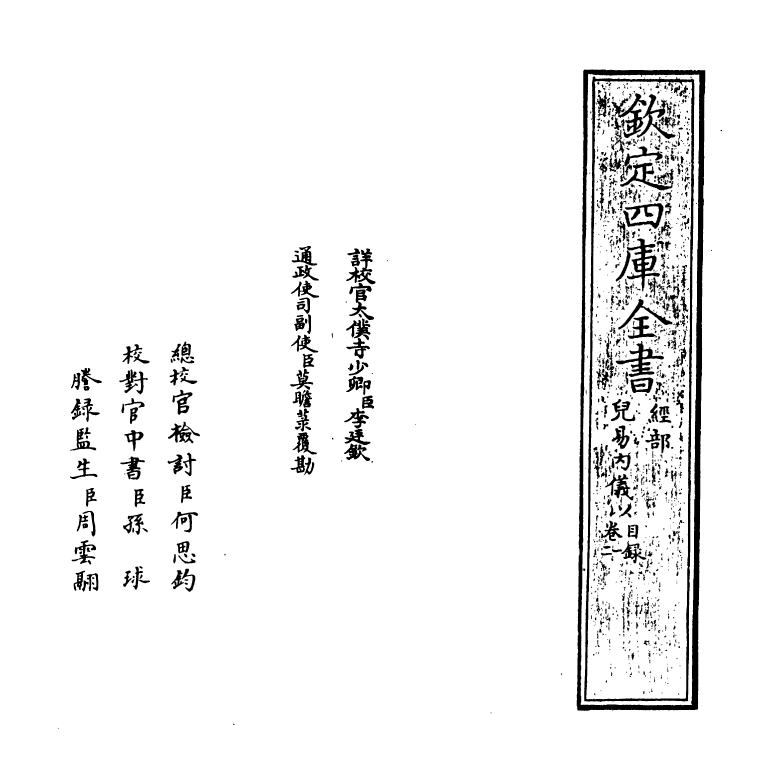 欽定四庫全書
經部
兒易内儀以
目録
卷一
二
詳校官太僕寺少卿臣李廷欽
通政使司副使臣莫瞻菉覆勘
總校官檢討臣何思鈞
校對官中書臣孫球
謄録監生臣周雲翮